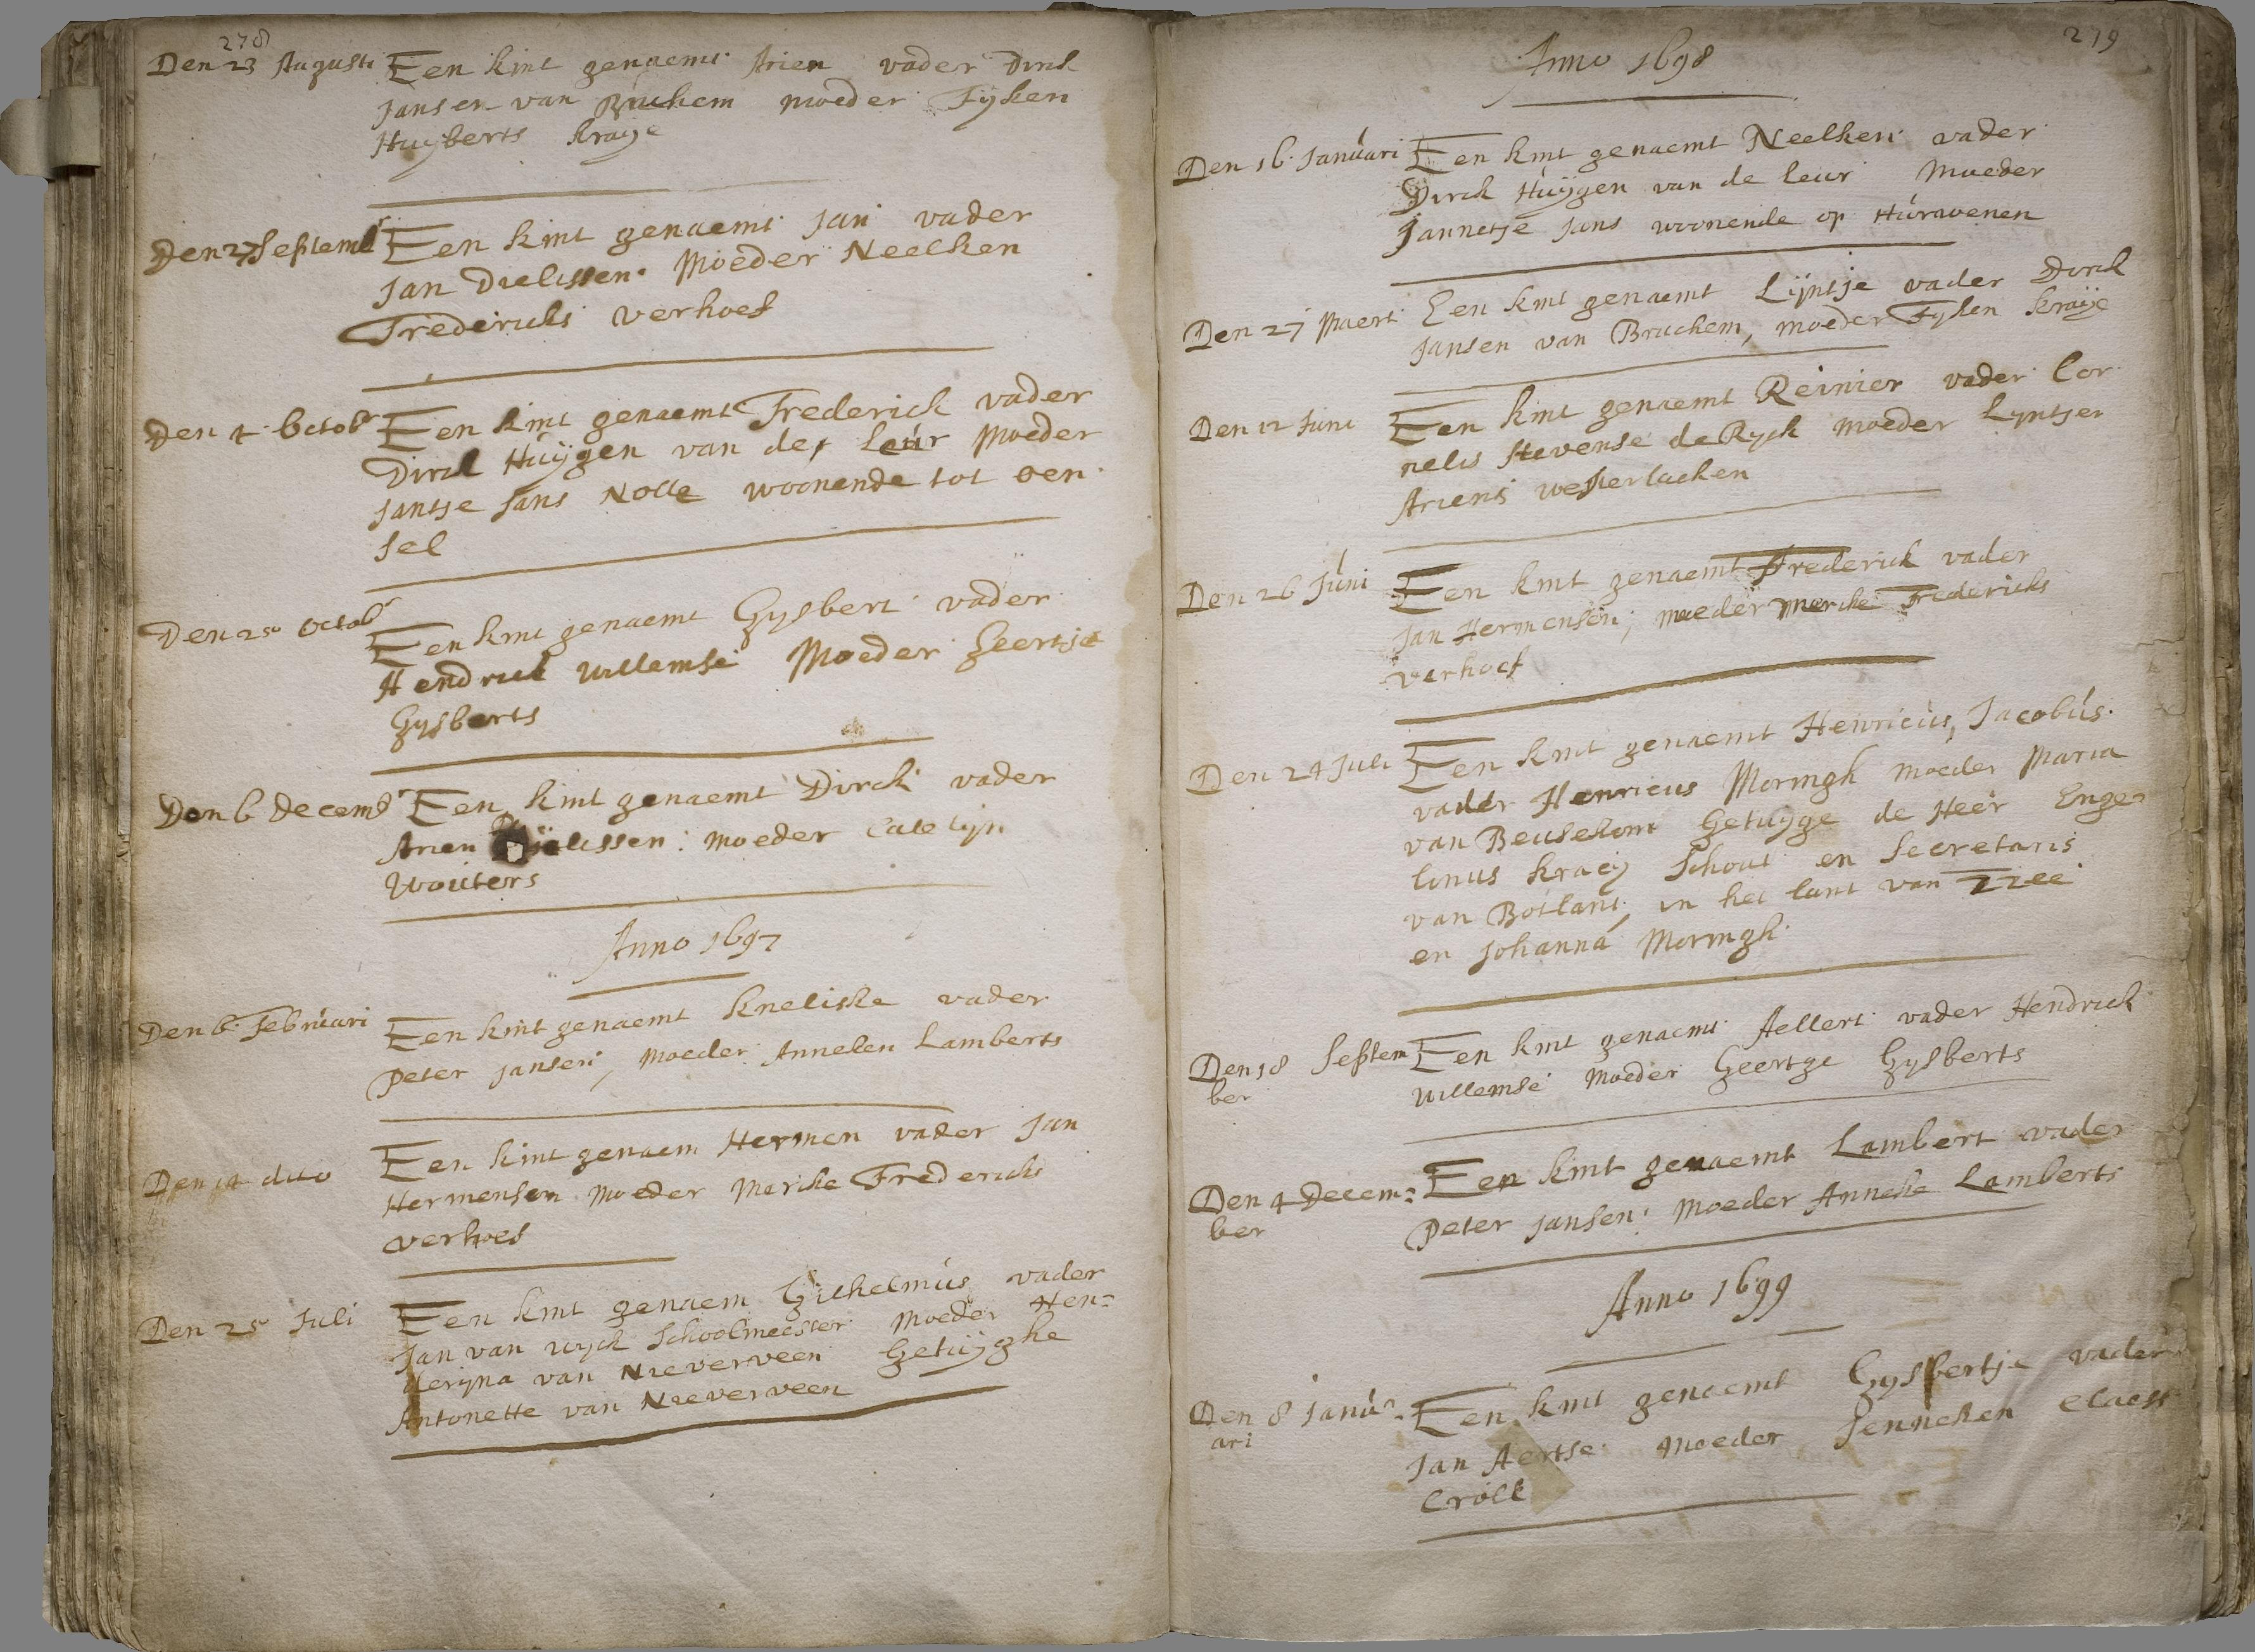 278
Den 23 Augusti Een kint genaemt Arien vader Dirck
Jansen van Bruchem moeder Fijken
Huijberts kraije
Den 27 Septembr Een kint genaemt Jan vader
Jan Dielissen. Moeder Neelken
Fredericks verhoef
Den 4 Octobr Een kint genaemt Frederick vader
Dirck Huijgen van der leur Moeder
Jantje Jans Nolle woonende tot oen
sel
Den 25 Octobr Een kint genaemt Gysbert vader
Hendrick willemse Moeder Geertje
Gysberts
Den 6 decembr Een kint genaemt Dirck vader
Arien Dielissen: moeder Catelijn
Wouters
Anno 1697
Den 6 Februari Een kint genaemt kneliske vader
Peter Jansen, Moeder Anneken Lamberts
Den 14 dito Een kint genaem Hermen vader Jan
Hermensen Moeder Mericke Fredericks
verhoef
Den 25 Juli Een kint genaem Gilhelmus vader
Jan van wyck Schoolmeester Moeder Hen=
derijna van Nieverveen Getuijghe
Antonette van Nieverveen
279
Anno 1698
Den 16 Januari Een kint genaemt Neelken vader
Dirck Huijgen van de leur Moeder
Jannetje Jans woonende op Hurwenen
Den 27 Maert Een kint genaemt Lijntje vader Dirck
Jansen van Bruchem, moeder Fyken kraije
Den 12 Juni Een kint genaemt Reinier vader Cor
nelis Stevense de Ryck moeder Lyntjen
Ariens westerlaken
Den 26 Juni Een kint genaemt Frederick vader
Jan Hermensen; moeder Mericke Fredericks
verhoef
Den 24 Juli Een kint genaemt Henricus, Jacobus
vader Henricus Moringh moeder Maria
van Beusekom Getuijge de Heer Enge=
linus kraeij Schout en Secretaris
van Botlant, in het lant van Zzee
en Johanna Moringh
Den 18 Septem Een kint genaemt Aellert vader Hendrick
ber willemse moeder Geertge Gysberts
Den 4 Decem= Een kint genaemt Lambert vader
ber Peter Jansen: Moeder Anneke Lamberts
Anno 1699
Den 8 Janu= Een kint genaemt Gysbertje vader
ari Jan Aertse Moeder Jenneken Claess
Croll